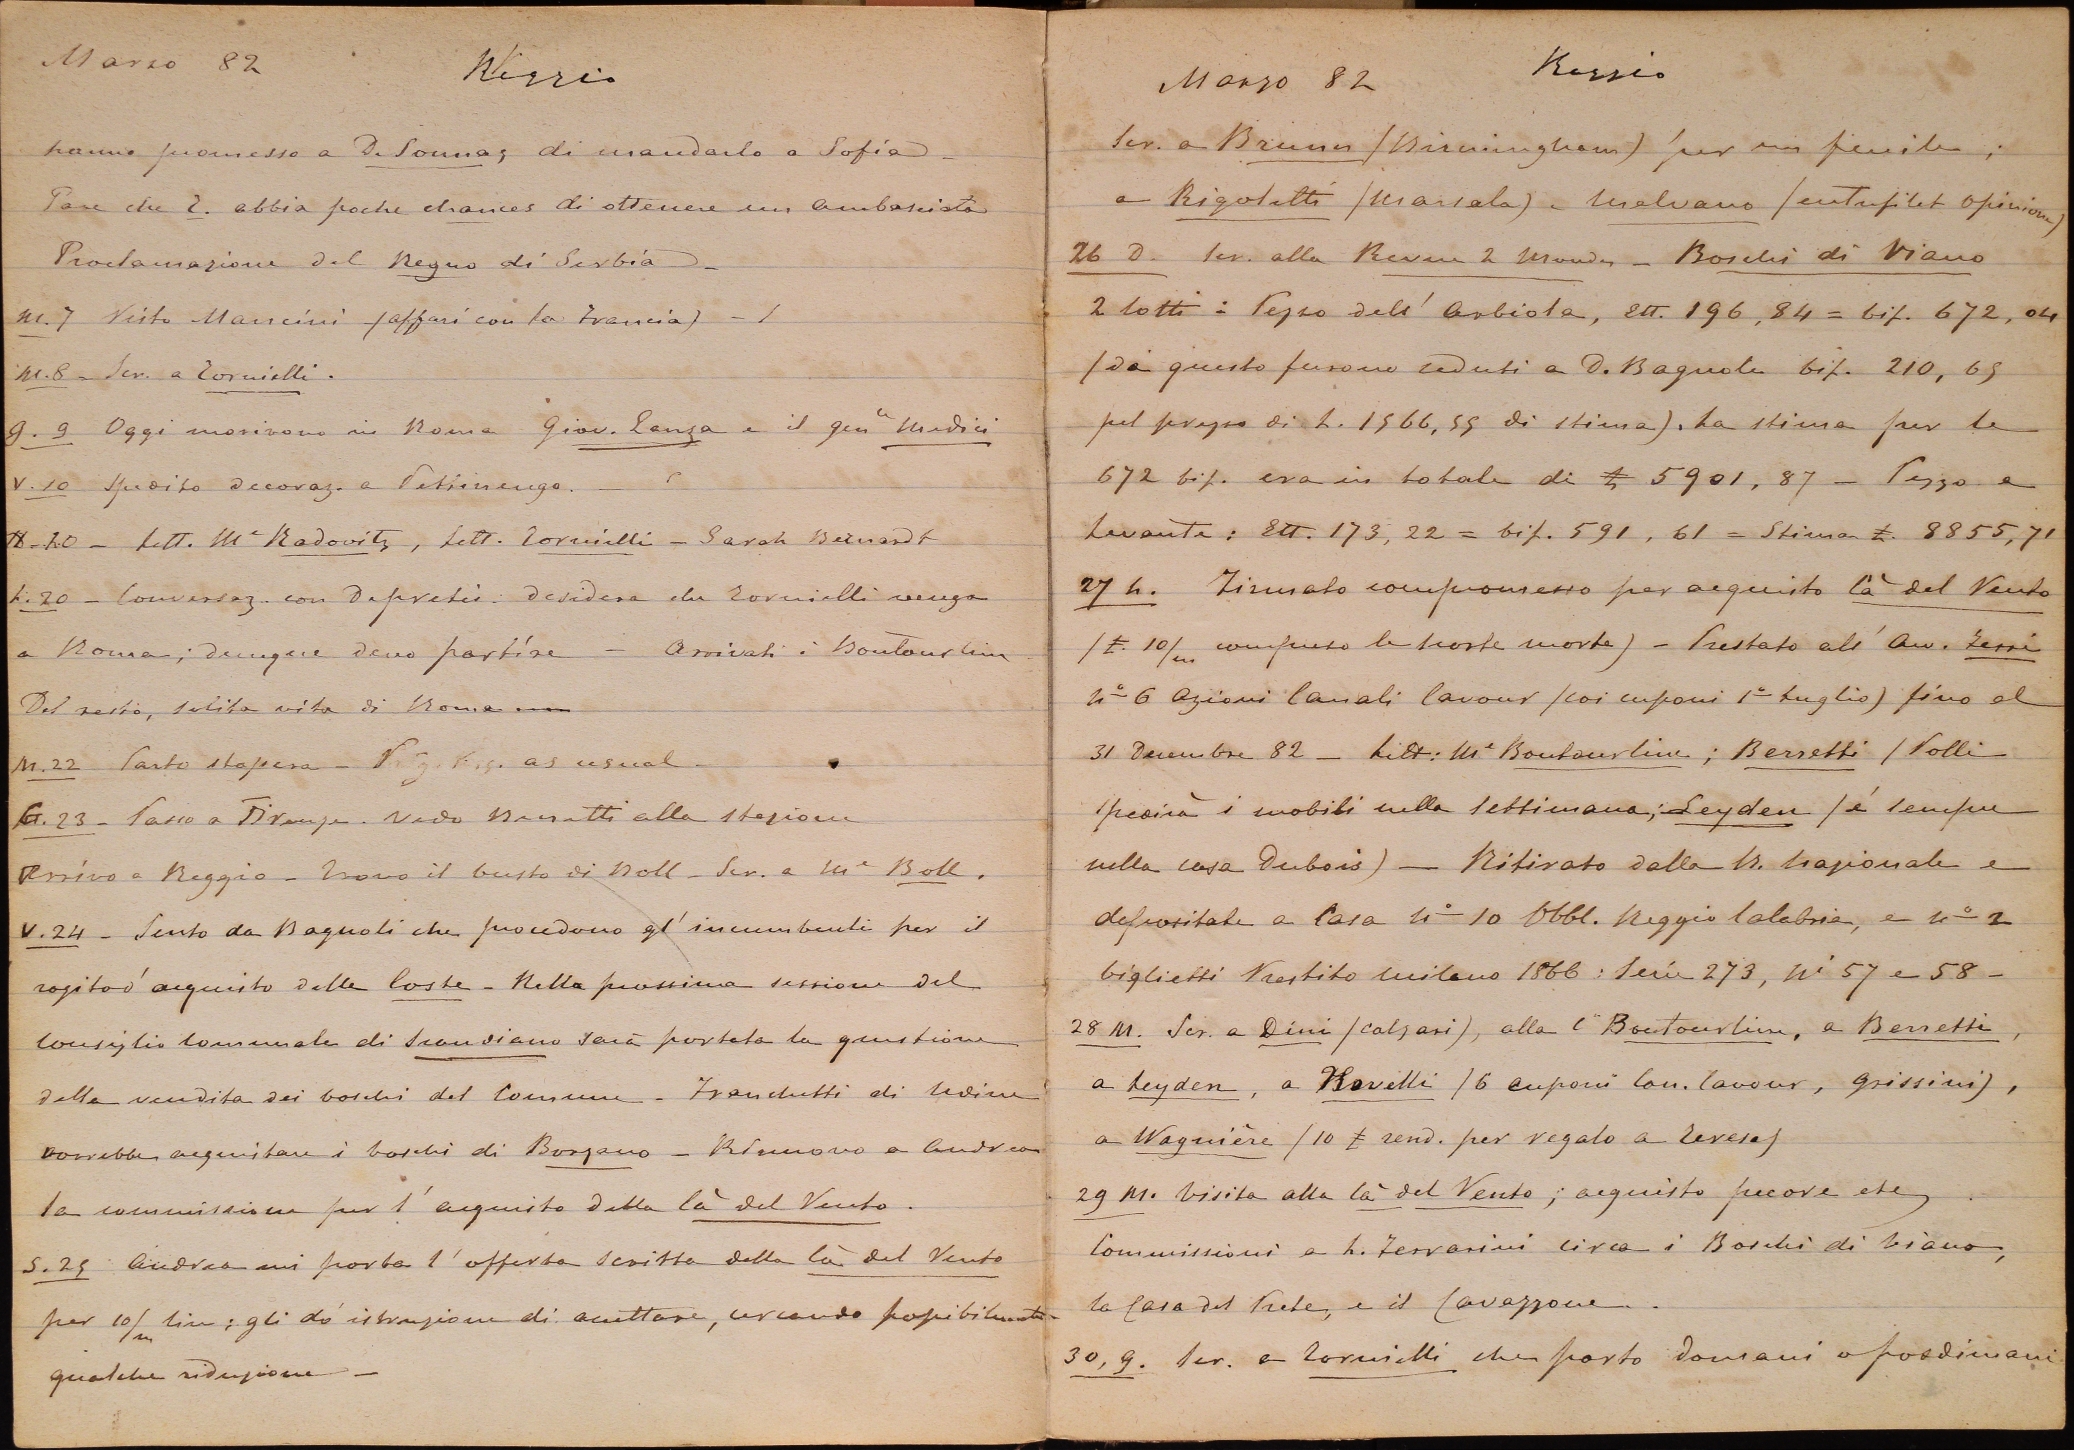 Marzo 82
Reggio
hanno promesso a De Sonnaz di mandarlo a Sofia –
Pare che T. abbia poche chances di ottenere un ambasciata
Proclamazione del Regno di Serbia –
M. 7 Visto Mancini (affari con la Francia) –
M. 8 – Scr. a Tornielli.
G. 9 Oggi morirono in Roma Giov. Lanza e il gen.le Medici
V. 10 Spedito decoraz. a Pettinengo. –
– Lett. Me Radovitz, lett. Tornielli – Sarah Bernardt
L. 20 – Conversaz. con Depretis: desidera che Tornielli venga
a Roma; dunque devo partire – Arrivati i Boutourlin
Del resto, solita vita di Roma
M. 22 Parto stasera – as usual –
G. 23 – Passo a Firenze. Vedo Berretti alla stazione
Arrivo a Reggio – Trovo il busto di Boll – Scr. a Me Boll.
V. 24 – Sento da Bagnoli che procedono gl' incumbenti per il
rogito d' acquisto delle Coste – Nella prossima sessione del
Consiglio Comunale di Scandiano sarà portata la questione
della vendita dei boschi del Comune – Franchetti di Udine
vorrebbe acquistare i boschi di Borzano – Rinnovo a Andrea
la commissione per l' acquisto della Cà del Vento.
S. 25 Andrea mi porta l' offerta scritta della Cà del Vento
per 10/m lire; gli dò istruzione di accettare, cercando possibilmente
qualche riduzione –
Marzo 82
Reggio
Scr. a Brunn (Birmingham) per un fucile;
a Rigoletti (Marsala) e Malvano (entrefilet Opinione)
26 D. Scr. alla Revue 2 Mondes – Boschi di Viano
2 lotti: Pezzo dell' Arbiola, Ett. 196,84 = bif. 672,04
(di questo furono ceduti a D. Bagnoli bif. 210,65
pel prezzo di L. 1566,55 di stima). La stima per le
672 bif. era in totale di £ 5901,87 – Pezzo a
Levante: Ett. 173,22 = bif. 591,61 = Stima £. 8855,71
27 L. Firmato compromesso per acquisto Cà del Vento
(£. 10/m compreso le scorte morte) – Prestato all' Avv. Ferri
No 6 Azioni Canali Cavour (coi cuponi 1o Luglio) fino al
31 Decembre 82 – Lett: Me Boutourline; Berretti (Polli
spedirà i mobili nella settimana; Leyden (é sempre
nella casa Dubois) – Ritirato dalla B. Nazionale e
depositate a Casa No 10 Obbl. Reggio Calabria, e No 2
biglietti Prestito Milano 1866: Serie 273, Ni 57 e 58 –
28 M. Scr. a Dini (calzari), alla C.a Boutourline, a Berretti,
a Leyden, a Novelli (6 cuponi Can. Cavour, grissini),
a Wagnière (10 £ rend. per regalo a Teresa)
29 M. Visita alla Cà del Vento; acquisto pecore etc.
Commissioni a L. Ferrarini circa i Boschi di Viano,
la Casa del Prete, e il Cavazzone.
30, G. Scr. a Tornielli che parto domani o posdimani